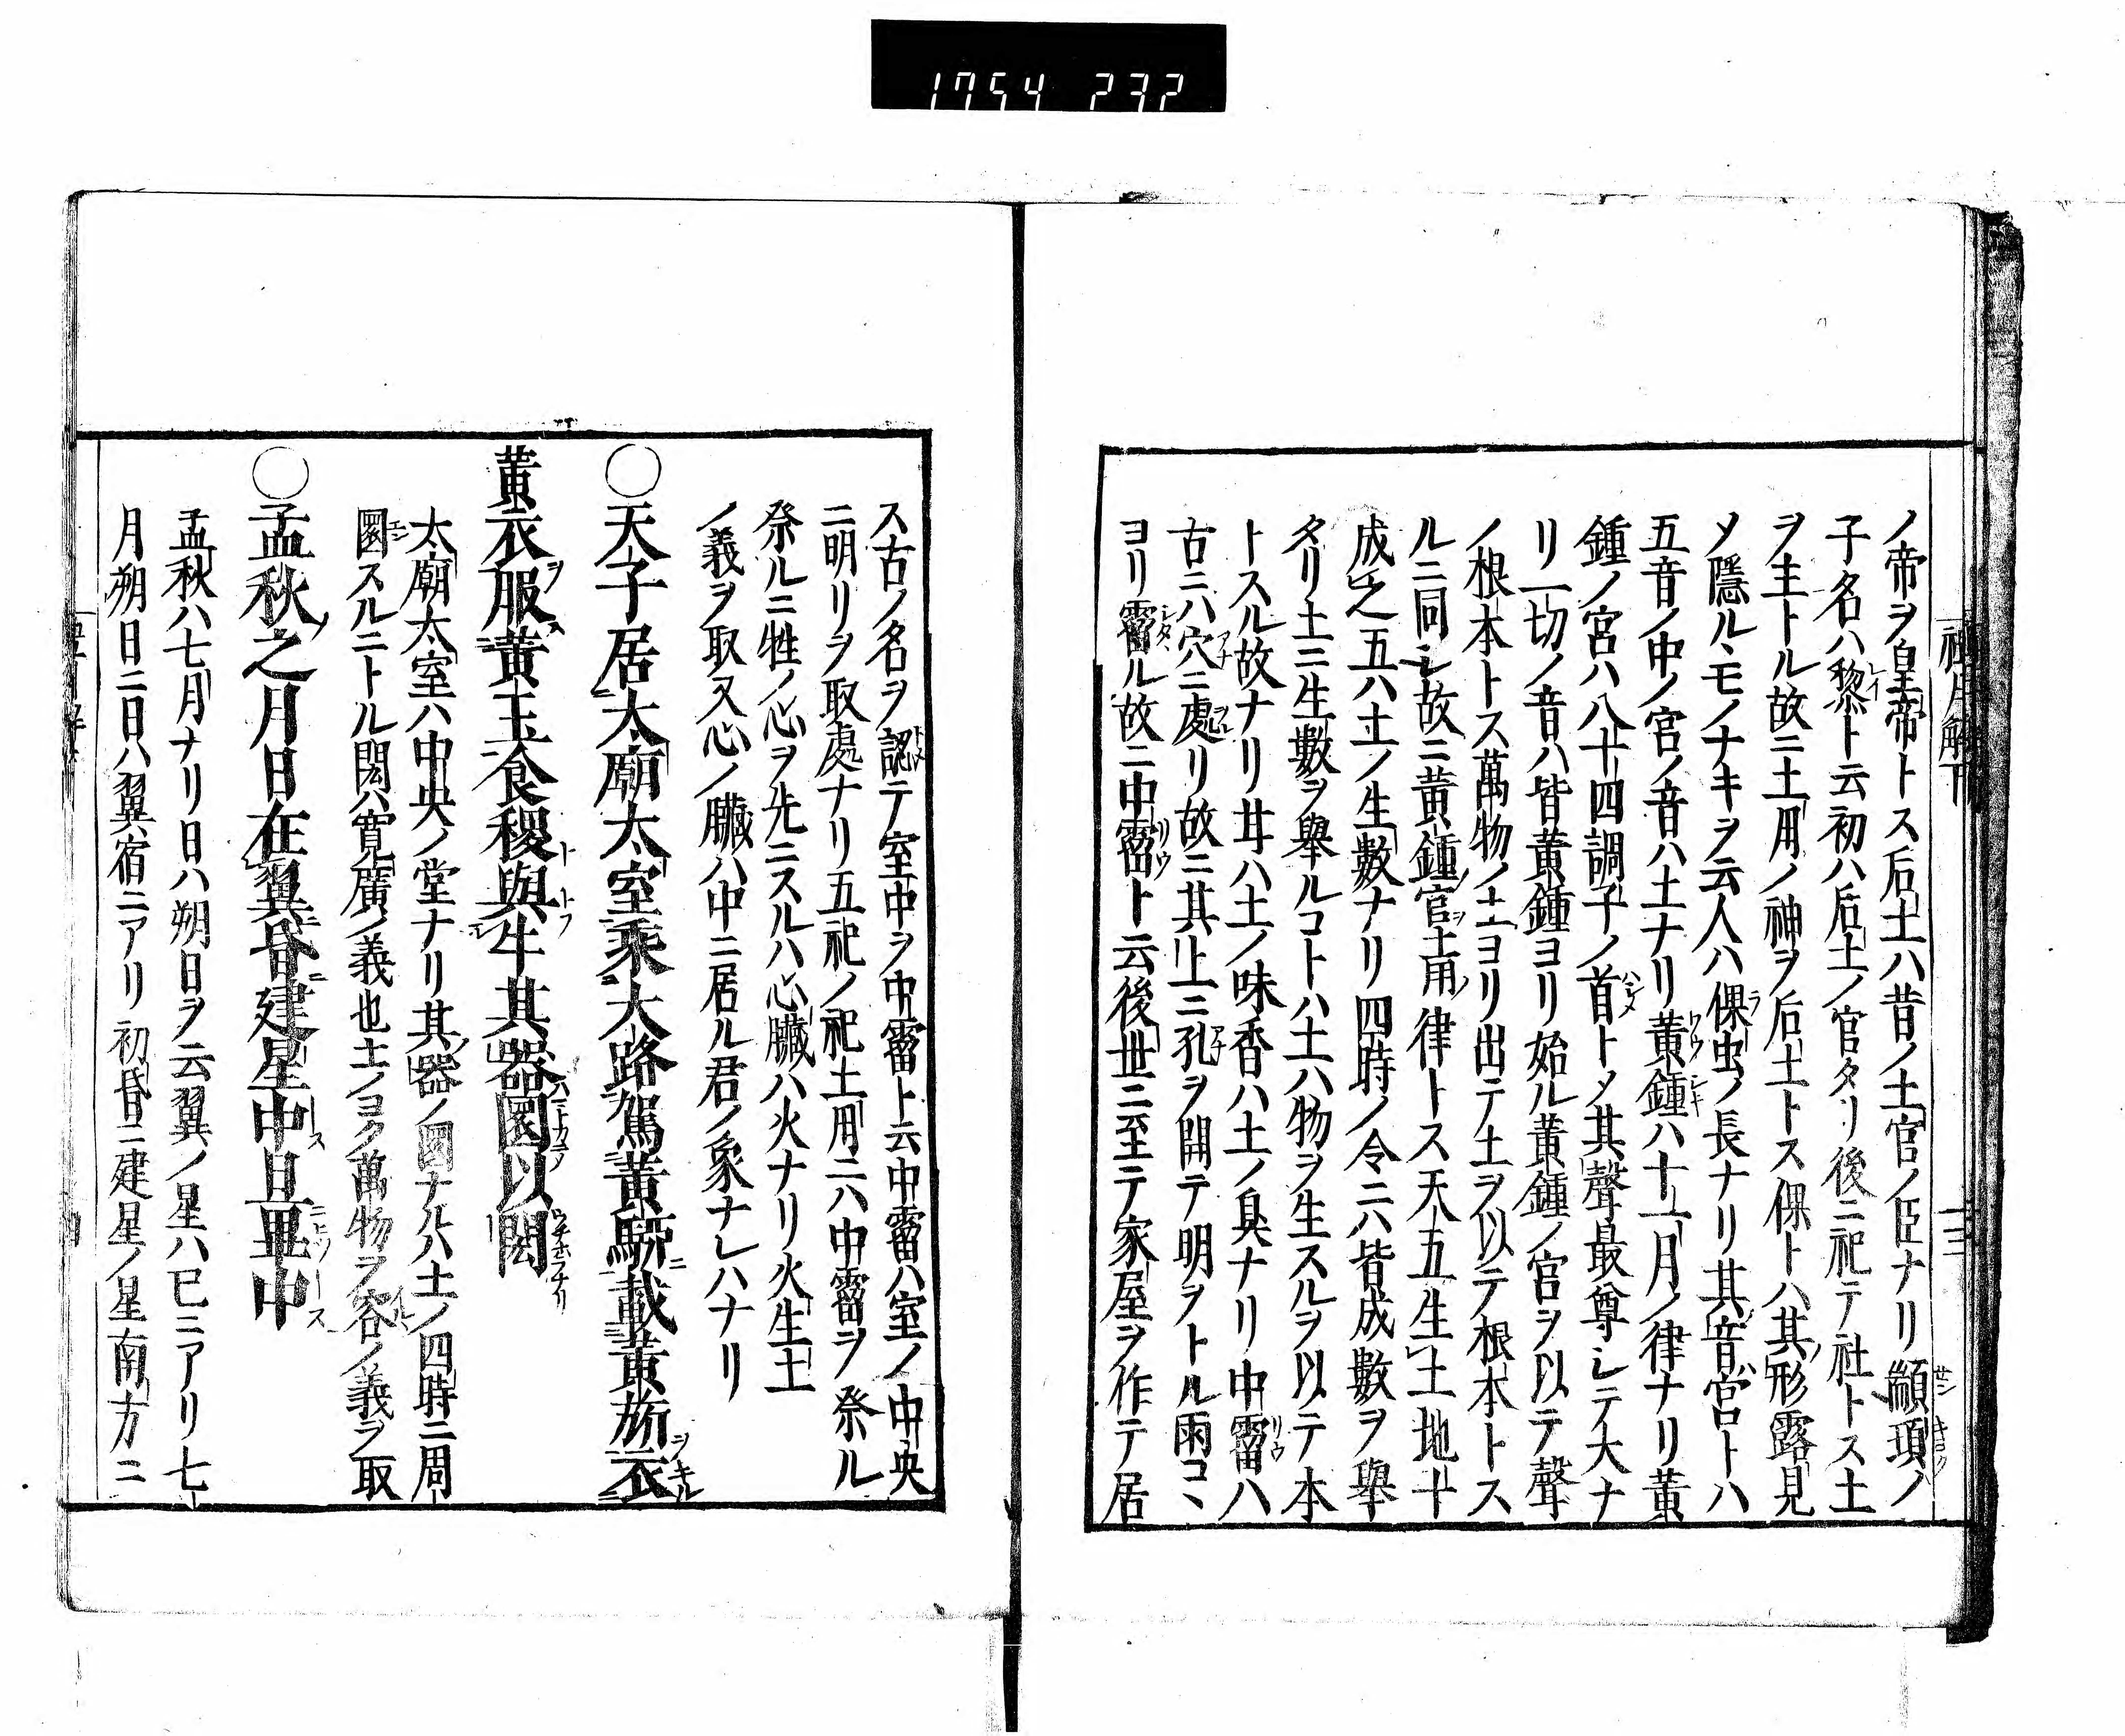 1754 232
ノ帝ヲ皇帝トス后土ハ昔ノ土官ノ臣ナリ顓頊ノ
子名ハ黎ト云初ハ后土ノ官タリ後ニ祀テ社トス土
ヲ主トル故ニ土用ノ神ヲ后土トス倮トハ其形露見
メ隱ルヽモノナキヲ云人ハ倮虫ノ長ナリ其音宮トハ
五音ノ中ノ宮ノ音ハ土ナリ黄鍾ハ十一月ノ律ナリ黄
鍾ノ宮ハ八十四調子ノ首トメ其聲最尊シテ大ナ
リ一切ノ音ハ皆黄鍾ヨリ始ル黄鍾ノ宮ヲ以テ聲
ノ根本トス萬物ノ土ヨリ出テ土ヲ以テ根本トス
ルニ同シ故ニ黄鍾ノ宮ヲ土用ノ律トス天五生土地十
成之五ハ土ノ生數ナリ四時ノ令ニハ皆成數ヲ舉
タリ土ニ生數ヲ舉ルコトハ土ハ物ヲ生スルヲ以テ本
トスル故ナリ甘ハ土ノ味香ハ土ノ臭ナリ中霤ハ
古ニハ穴ニ處リ故ニ其上ニ孔ヲ開テ明ヲトル雨コヽ
ヨリ霤ル故ニ中霤ト云後世ニ至テ家屋ヲ作テ居
ス古ノ名ヲ認テ室中ヲ中霤ト云中霤ハ室ノ中央
ニ明リヲ取處ナリ五祀ノ祀土用ニハ中霤ヲ祭ル
祭ルニ牲ノ心ヲ先ニスルハ心臟ハ火ナリ火生土
ノ義ヲ取又心ノ臟ハ中ニ居ル君ノ象ナレハナリ
○天子居太廟太室乘大路駕黄駵載黄旂衣
黄衣服黄玉食稷與牛其器圜以閎
太廟太室ハ中央ノ堂ナリ其器ノ圜ナルハ土ノ四時ニ周
圜スルニトル閎ハ寛廣ノ義也土ノヨク萬物ヲ容ルノ義ヲ取
○孟秋之月日在翼昏建星中旦畢中
孟秋ハ七月ナリ日ハ朔日ヲ云翼ノ星ハ巳ニアリ七
月朔日ニ日ハ翼宿ニアリ初昏ニ建星ノ星南方ニ